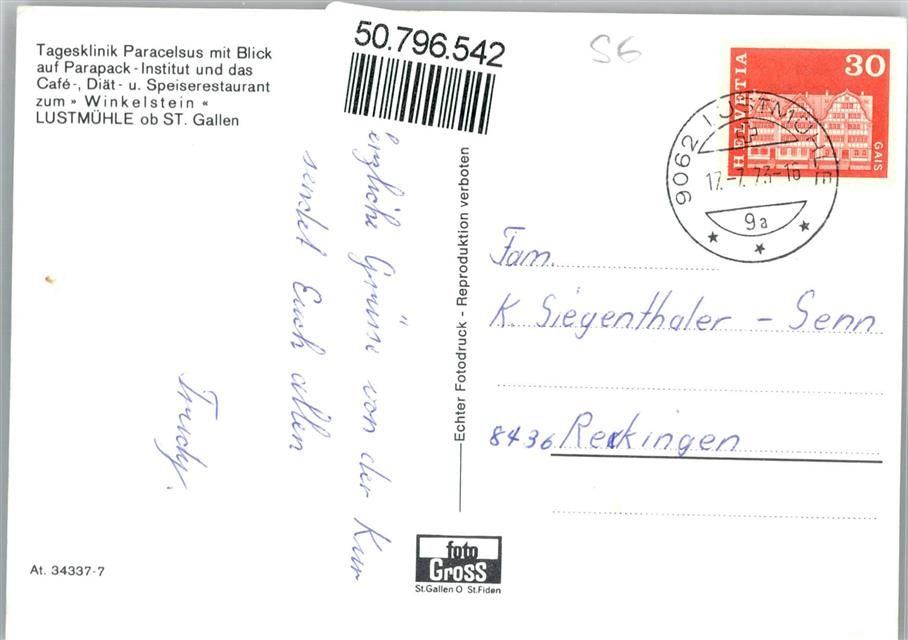 Tagesklinik Paracelsus mit Blick
auf Parapack-Institut und das
Café-, Diät- u. Speiserestaurant
zum » Winkelstein «
LUSTMÜHLE ob ST. Gallen
50.796.542
S6
HELVETIA
30
GAIS
9062 LUSTMÜHLE
17.-7.73-16
9a
erzliche Grüsse von der Kur
sendet Euch allen
Trudy.
Echter Fotodruck - Reproduktion verboten
Fam.
K. Siegenthaler - Senn
8436 Rekingen
At. 34337-7
foto
GROSS
St.Gallen O St.Fiden